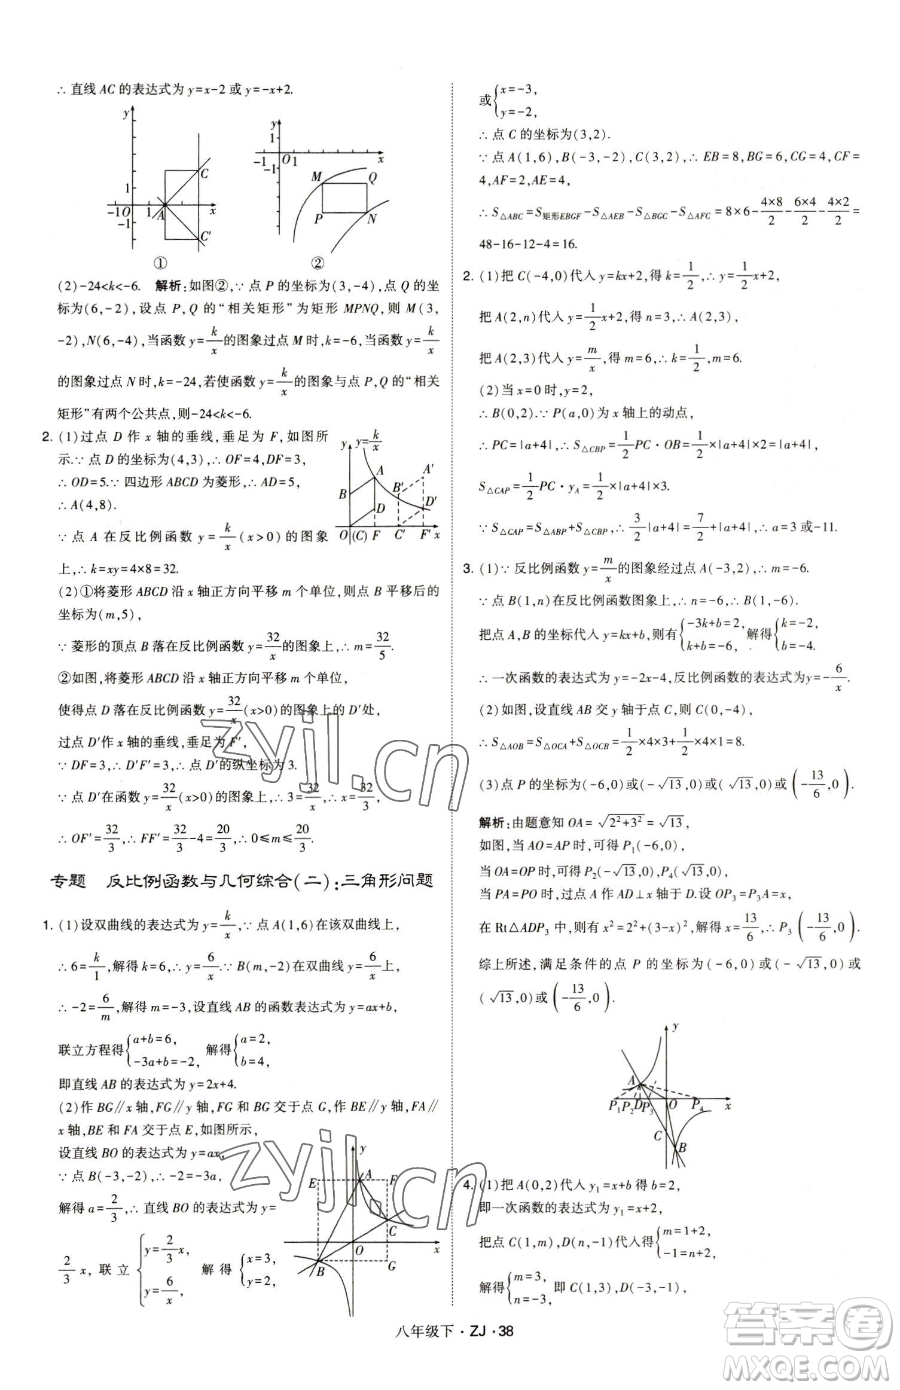 ∴ 直线 AC 的表达式为 y=x-2 或 y=-x+2.
y
1
-1 O 1 A
-1
C
C'
x
①
y
1
-1 O 1
-1
x
M Q
P N
②
(2)-24<k<-6. 解析:如图②,∵ 点 P 的坐标为(3,-4),点 Q 的
坐标为(6,-2),设点 P,Q 的“相关矩形”为矩形 MPNQ,则 M(3,
-2),N(6,-4),当函数 y=k/x 的图象过点 M 时,k=-6,当函数 y=k/x
的图象过点 N 时,k=-24,若使函数 y=k/x 的图象与点 P,Q 的“相关
矩形”有两个公共点,则-24<k<-6.
2. (1)过点 D 作 x 轴的垂线,垂足为 F,如图所
示.∵ 点 D 的坐标为(4,3),∴ OF=4,DF=3,
∴ OD=5.∵ 四边形 ABCD 为菱形,∴ AD=5,
∴ A(4,8).
∵ 点 A 在反比例函数 y=k/x (x>0)的图象
上,∴ k=xy=4×8=32.
y y=k/x
A A'
B B'
D D'
O (C) F C' F' x
(2)①将菱形 ABCD 沿 x 轴正方向平移 m 个单位,则平移后 B 的
坐标为(m,5),
∵ 菱形的顶点 B 落在反比例函数 y=32/x 的图象上,∴ m=32/5.
②如图,将菱形 ABCD 沿 x 轴正方向平移 m 个单位,
使得点 D 落在反比例函数 y=32/x (x>0)的图象上的 D'处,
过点 D'作 x 轴的垂线,垂足为 F',
∵ DF=3,∴ D'F'=3.∴ D'的纵坐标为 3.
∵ 点 D'在函数 y=32/x (x>0)的图象上,∴ 3=32/x,∴ x=32/3,
∴ OF'=32/3,∴ FF'=32/3-4=20/3,∴ 0≤m≤20/3.
专题 反比例函数与几何综合(二):三角形问题
1. (1)设双曲线的表达式为 y=k/x,∵ 点 A(1,6)在该双曲线上,
∴ 6=k/1,解得 k=6,∴ y=6/x.∵ B(m,-2)在双曲线 y=6/x 上,
∴ -2=6/m,解得 m=-3,设直线 AB 的函数表达式为 y=ax+b,
联立方程得{a+b=6, -3a+b=-2, 解得{a=2, b=4.
即直线 AB 的表达式为 y=2x+4.
(2)作 BG∥x 轴,FG∥y 轴,BG 和 FG 交于点 G,作 BE∥y 轴,FA∥
x 轴,BE 和 FA 交于点 E,如图所示,
设直线 BO 的表达式为 y=ax,
∵ 点 B(-3,-2),∴ -2=-3a,
解得 a=2/3,∴ 直线 BO 的表达式为 y=
2/3 x,联立{y=2/3 x, y=6/x, 解得{x=3, y=2,
y
E A F
C
O x
B G
或{x=-3, y=-2,
∴ 点 C 的坐标为(3,2).
∵ 点 A(1,6),B(-3,-2),C(3,2),∴ EB=8,BG=6,CG=
4,AF=2,AE=4,
∴ S△ABC=S矩形EBGF-S△AEB-S△BGC-S△AFC=8×6-4×8/2-6×4/2-4×2/2=
48-16-12-4=16.
2. (1)把 C(-4,0)代入 y=kx+2,得 k=1/2,∴ y=1/2 x+2,
把 A(2,n)代入 y=1/2 x+2,得 n=3,∴ A(2,3),
把 A(2,3)代入 y=m/x,得 m=6,∴ k=1/2,m=6.
(2)当 x=0 时,y=2,
∴ B(0,2).∵ P(a,0)为 x 轴上的动点,
∴ PC=|a+4|,∴ S△CBP=1/2 PC·OB=1/2×|a+4|×2=|a+4|,
S△CAP=1/2 PC·yA=1/2×|a+4|×3.
∵ S△CAP=S△ABP+S△CBP,∴ 3/2|a+4|=7/2+|a+4|,∴ a=3 或-11.
3. (1)∵ 反比例函数 y=m/x 的图象经过点 A(-3,2),∴ m=-6.
∵ 点 B(1,n)在反比例函数图象上,∴ n=-6,∴ B(1,-6),
把点 A,B 的坐标代入 y=kx+b,则有{-3k+b=2, k+b=-6, 解得{k=-2, b=-4,
∴ 一次函数的表达式为 y=-2x-4,反比例函数的表达式为 y=-6/x.
(2)如图,设直线 AB 交 y 轴于点 C,则 C(0,-4),
∴ S△AOB=S△OCA+S△OCB=1/2×4×3+1/2×4×1=8.
(3)点 P 的坐标为(-6,0)或(-√13,0)或(√13,0)或(-13/6,0).
解析:由题意知 OA=√2²+3²=√13,
如图,当 AO=AP 时,可得 P₁(-6,0),
当 OA=OP 时,可得 P₂(-√13,0),P₄(√13,0),
当 PA=PO 时,过点 A 作 AD⊥x 轴于 D.设 OP₃=AP₃=x,
在 Rt△ADP₃ 中,则有 x²=2²+(3-x)²,解得 x=13/6,∴ P₃(-13/6,0).
综上所述,满足条件的点 P 的坐标为(-6,0)或(-√13,0)或
(√13,0)或(-13/6,0).
y
A
P₁ P₂ D P₃ O P₄ x
C
B
4. (1)把 A(0,2)代入 y₁=x+b 得 b=2,
即一次函数的表达式为 y₁=x+2,
把点 C(1,m),D(n,-1)代入得{m=1+2, -1=n+2,
解得{m=3, n=-3, 即 C(1,3),D(-3,-1),
八年级下·ZJ·38
zyjl.cn
zyjl.cn
答案圈
MXQE.COM